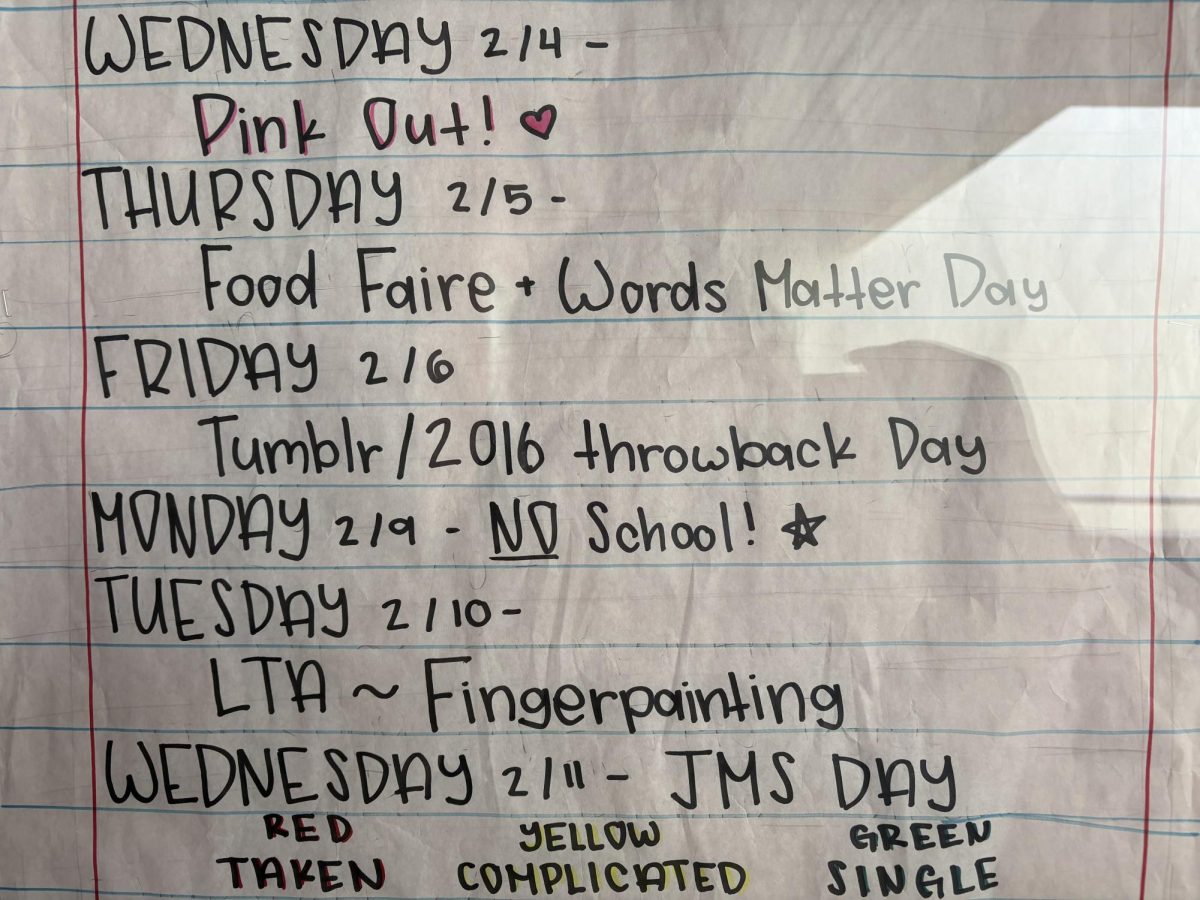 WEDNESDAY 2/4 -
Pink Out!
THURSDAY 2/5 -
Food Faire + Words Matter Day
FRIDAY 2/6
Tumblr/2016 throwback Day
MONDAY 2/9 - NO School!
TUESDAY 2/10 -
LTA ~ Fingerpainting
WEDNESDAY 2/11 - JMS DAY
RED YELLOW GREEN
TAKEN COMPLICATED SINGLE